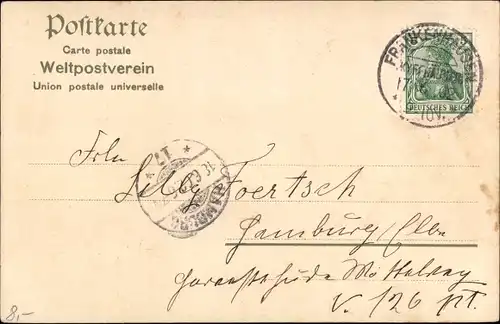 Postkarte
Carte postale
Weltpostverein
Union postale universelle
FRANKENHAUSEN
DEUTSCHES REICH
Frln
Lilly Foertsch
Hamburg
HAMBURG
Mittelweg
v. 126 pt.
8,-